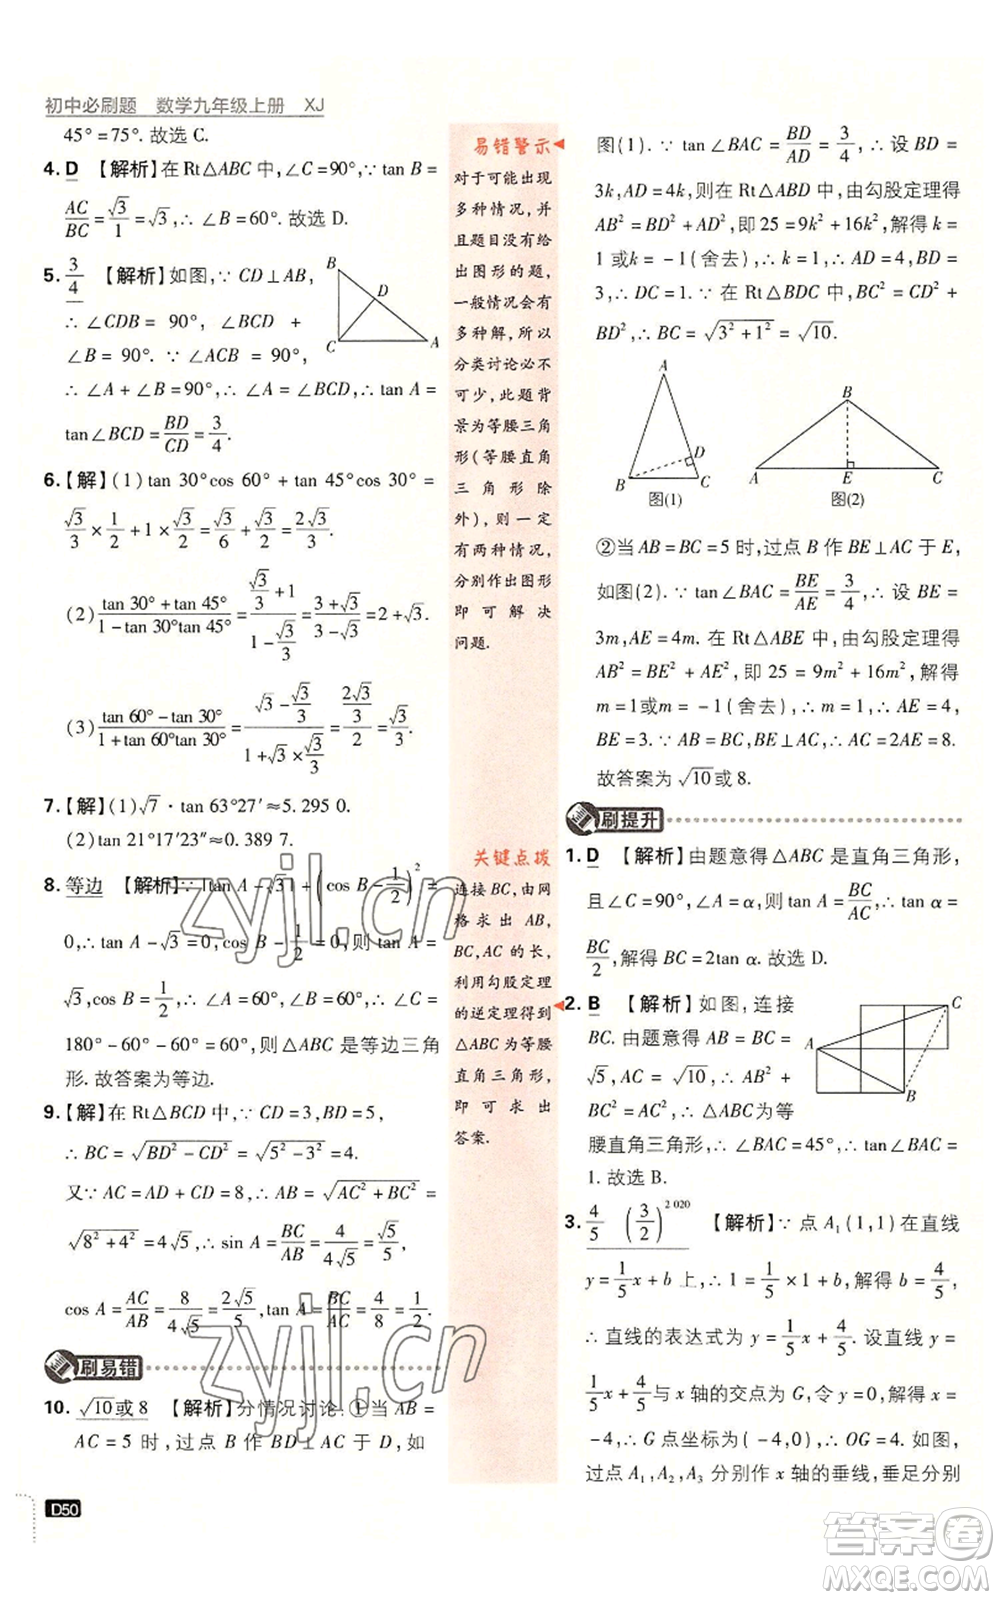 初中必刷题 数学九年级上册 XJ
45°=75°. 故选 C.
4. D 【解析】在 Rt△ABC 中,∠C=90°,∵ tan B=
AC/BC=√3/1=√3,∴ ∠B=60°. 故选 D.
5. 3/4 【解析】如图,∵ CD⊥AB,
∴ ∠CDB=90°, ∠BCD+
∠B=90°. ∵ ∠ACB=90°,
∴ ∠A+∠B=90°,∴ ∠A=∠BCD,∴
tan∠BCD=BD/CD=3/4.
B D C A
6.【解】(1)tan 30°cos 60°+tan 45°cos 30°=
√3/3×1/2+1×√3/2=√3/6+√3/2=2√3/3.
(2)(tan 30°+tan 45°)/(1-tan 30°tan 45°)=(√3/3+1)/(1-√3/3)=(3+√3)/(3-√3)=2+√3.
(3)(tan 60°-tan 30°)/(1+tan 60°tan 30°)=(√3-√3/3)/(1+√3×√3/3)=(2√3/3)/2=√3/3.
7.【解】(1)√7·tan 63°27′≈5.295 0.
(2)tan 21°17′23″≈0.389 7.
8. 等边 【解析】∵ |tan A-√3|+(cos B-1/2)²=
0,∴ tan A-√3=0,cos B-1/2=0,则 tan A=
√3,cos B=1/2,∴ ∠A=60°,∠B=60°,∴ ∠C=
180°-60°-60°=60°,则△ABC 是等边三角
形. 故答案为等边.
9.【解】在 Rt△BCD 中,∵ CD=3,BD=5,
∴ BC=√(BD²-CD²)=√(5²-3²)=4.
又∵ AC=AD+CD=8,∴ AB=√(AC²+BC²)=
√(8²+4²)=4√5,∴ sin A=BC/AB=4/(4√5)=√5/5,
cos A=AC/AB=8/(4√5)=2√5/5,tan A=BC/AC=4/8=1/2.
刷易错
10. √10或8 【解析】分情况讨论. ①当 AB=
AC=5 时,过点 B 作 BD⊥AC 于 D,如
D50
易错警示
对于可能出现
多种情况,并
且题目没有给
出图形的题,
一般情况会有
多种解,所以
分类讨论必不
可少,此题背
景为等腰三角
形(等腰直角
三角形除
外),则一定
有两种情况,
分别作出图形
即可解决
问题.
关键点拨
连接 BC,由网
格求出 AB,
BC,AC 的长,
利用勾股定理
的逆定理得到
△ABC 为等腰
直角三角形,
即可求出
答案.
图(1). ∵ tan∠BAC=BD/AD=3/4,∴ 设 BD=
3k,AD=4k,则在 Rt△ABD 中,由勾股定理得
AB²=BD²+AD²,即 25=9k²+16k²,解得 k=
1或 k=-1(舍去),∴ k=1,∴ AD=4,BD=
3,∴ DC=1. ∵ 在 Rt△BDC 中,BC²=CD²+
BD²,∴ BC=√(3²+1²)=√10.
A B C D 图(1)
A B C E 图(2)
②当 AB=BC=5 时,过点 B 作 BE⊥AC 于 E,
如图(2). ∵ tan∠BAC=BE/AE=3/4,∴ 设 BE=
3m,AE=4m. ∵ 在 Rt△ABE 中,由勾股定理得
AB²=BE²+AE²,即 25=9m²+16m²,解得
m=1或 m=-1(舍去),∴ m=1,∴ AE=4,
BE=3. ∵ AB=BC,BE⊥AC,∴ AC=2AE=8.
故答案为 √10或8.
刷提升
1. D 【解析】由题意得△ABC 是直角三角形,
且∠C=90°,∠A=α,则 tan A=BC/AC,∴ tan α=
BC/2,解得 BC=2tan α. 故选 D.
2. B 【解析】如图,连接
BC. 由题意得 AB=BC=
√5,AC=√10,∴ AC²=
AB²+BC²,∴ △ABC为等
腰直角三角形,∴ ∠BAC=45°,∴ tan∠BAC=
1. 故选 B.
A B C
3. 4/5 (3/2)^2 020 【解析】∵ 点 A₁(1,1)在直线
y=1/5x+b 上,∴ 1=1/5×1+b,解得 b=4/5,
∴ 直线的表达式为 y=1/5x+4/5. 设直线 y=
1/5x+4/5与 x 轴的交点为 G,令 y=0,解得 x=
-4,∴ G 点坐标为(-4,0),∴ OG=4. 如图,
过点 A₁,A₂,A₃ 分别作 x 轴的垂线,垂足分别
zyjl.cn
zyjl.cn
答案圈
MXQE.COM